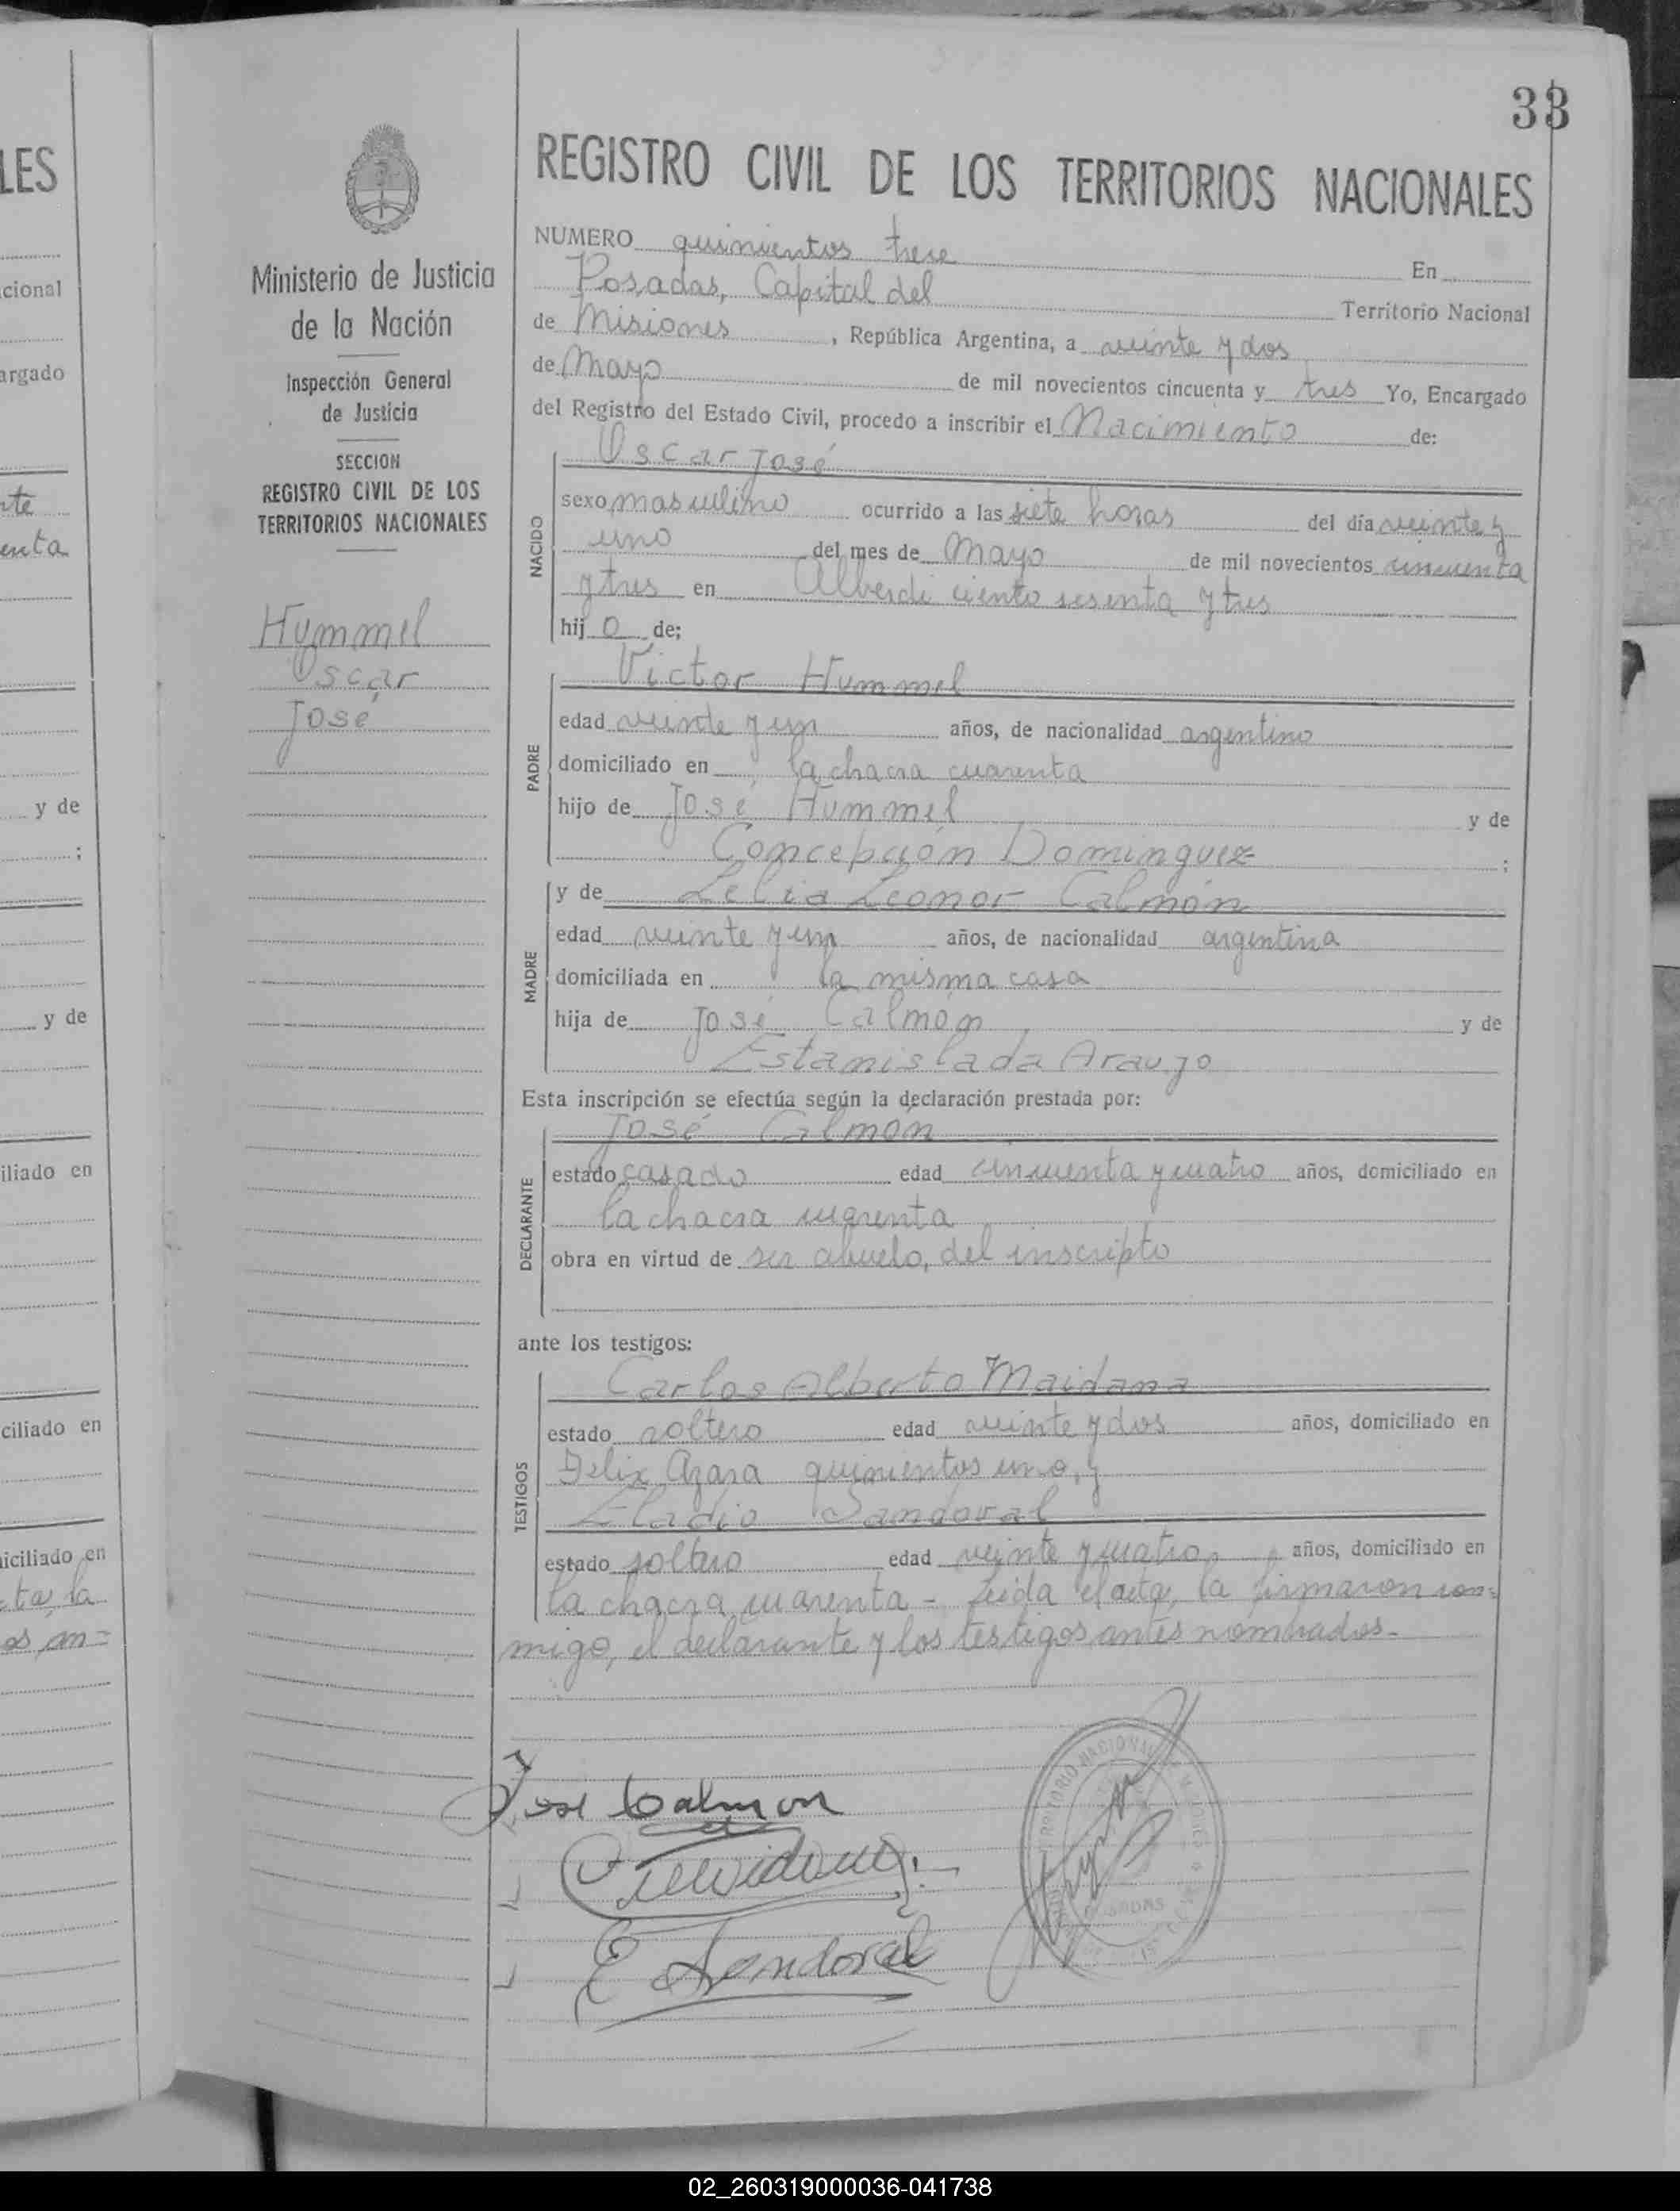 33
REGISTRO CIVIL DE LOS TERRITORIOS NACIONALES
Ministerio de Justicia
de la Nación
Inspección General
de Justicia
SECCION
REGISTRO CIVIL DE LOS
TERRITORIOS NACIONALES
Hummel
Oscar
José
NUMERO quinientos trece En
Posadas, Capital del Territorio Nacional
de Misiones, República Argentina, a veinte y dos
de Mayo de mil novecientos cincuenta y tres Yo, Encargado
del Registro del Estado Civil, procedo a inscribir el Nacimiento de:
NACIDO
Oscar José
sexo masculino ocurrido a las siete horas del día veinte y
uno del mes de Mayo de mil novecientos cincuenta
y tres en Alberdi ciento sesenta y tres
hij o de;
PADRE
Victor Hummel
edad veinte y un años, de nacionalidad argentino
domiciliado en la chacra cuarenta
hijo de José Hummel y de
Concepción Dominguez ;
MADRE
y de Lelia Leonor Calmón
edad veinte y un años, de nacionalidad argentina
domiciliada en la misma casa
hija de José Calmón y de
Estanislada Araujo
Esta inscripción se efectúa según la declaración prestada por:
DECLARANTE
José Calmón
estado casado edad cincuenta y cuatro años, domiciliado en
la chacra cuarenta
obra en virtud de ser abuelo, del inscripto
ante los testigos:
TESTIGOS
Carlos Alberto Maidana
estado soltero edad veinte y dos años, domiciliado en
Felix Azara quinientos uno, y
Eladio Sandoval
estado soltero edad veinte y cuatro años, domiciliado en
la chacra cuarenta - Leida el acta, la firmaron con=
migo, el declarante y los testigos antes nombrados.-
José Calmon
E Sandoval
POSADAS
LES
cional
argado
nte
enta
y de
;
y de
iliado en
ciliado en
iciliado en
cta, la
os, an=
02_260319000036-041738